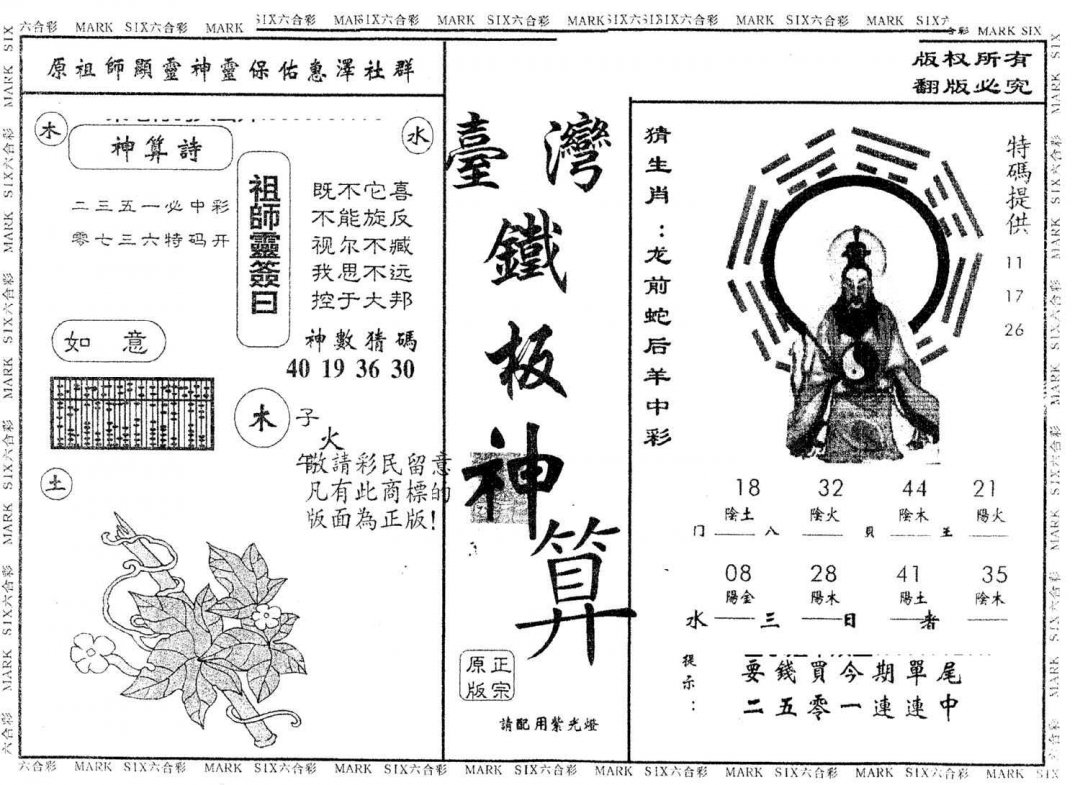 六合彩 MARK SIX六合彩 MARK SIX六合彩 MARK SIX六合彩 MARK SIX六合彩 MARK SIX六合彩 MARK SIX六合彩 MARK SIX
原祖師顯靈神靈保佑惠澤社群
木
神算詩
二三五一必中彩
零七三六特码开
水
祖師靈簽曰
既不它喜
不能旋反
视尔不臧
我思不远
控于大邦
神數猜碼
40 19 36 30
如意
木
子
火
午
敬請彩民留意
凡有此商標的
版面為正版!
土
臺灣
鐵
板
神
算
原正
版宗
請配用紫光燈
版权所有
翻版必究
猜生肖:龙前蛇后羊中彩
特碼提供
11
17
26
18 32 44 21
陰土 陰火 陰木 陽火
门 八 貝 王
08 28 41 35
陽金 陽木 陽土 陰木
水 三 日 者
提示:
要錢買今期單尾
二五零一連連中
六合彩 MARK SIX六合彩 MARK SIX六合彩 MARK SIX六合彩 MARK SIX六合彩 MARK SIX六合彩 MARK SIX六合彩 MARK SIX六合彩 MARK SIX